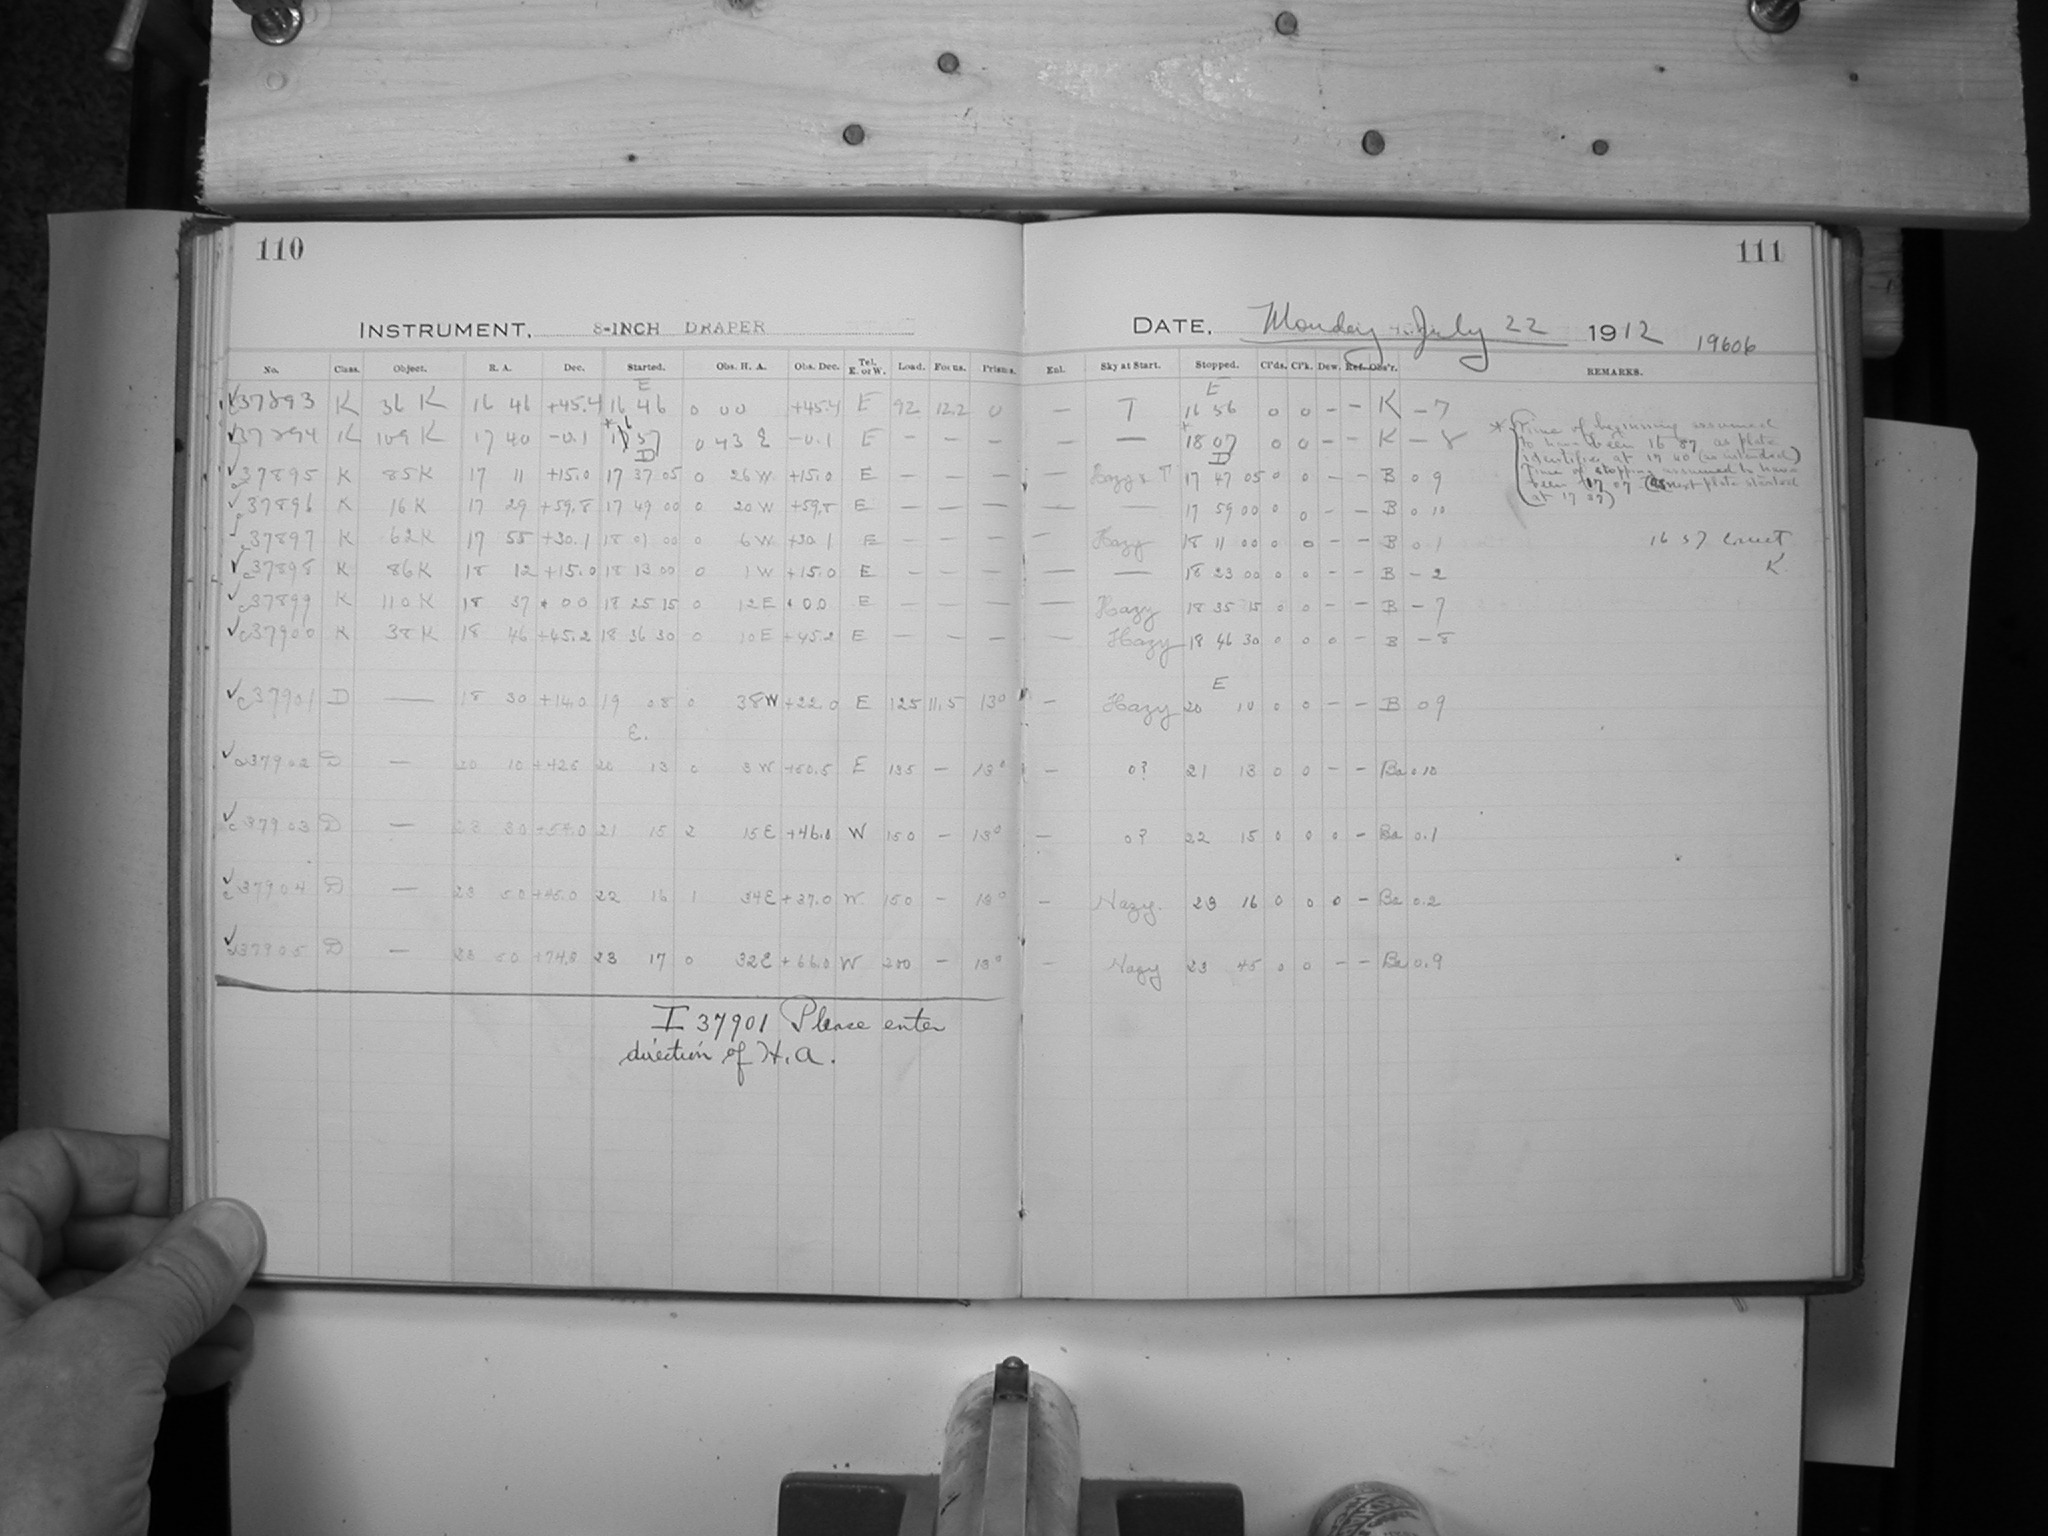 110
111
INSTRUMENT. 8-INCH DRAPER
DATE. Monday July 22 1912 19606
No. Class. Object. R. A. Dec. Started. Obs. H. A. Obs. Dec. Tel. E. or W. Load. Focus. Prisms. Enl. Sky at Start. Stopped. Cl'ds. Cl'k. Dew. Ref. Obs'r. REMARKS.
E E
37893 K 36 K 16 46 +45.4 16 46 0 00 +45.4 E 92 12.2 0 — T 16 56 0 0 – – K – 7
37894 K 109 K 17 40 –0.1 16 37 0 43 E –0.1 E – – – — — 18 07 0 0 – – K – 8
D D
37895 K 85 K 17 11 +15.0 17 37 05 0 26 W +15.0 E – – – — Hazy & T 17 47 05 0 0 – – B 0 9
37896 K 16 K 17 29 +59.8 17 49 00 0 20 W +59.8 E – – – — — 17 59 00 0 0 – – B 0 10
37897 K 62 K 17 55 +30.1 18 01 00 0 6 W +30.1 E – – – — Hazy 18 11 00 0 0 – – B 0 1
c37898 K 86 K 18 12 +15.0 18 13 00 0 1 W +15.0 E – – – — — 18 23 00 0 0 – – B – 2
c37899 K 110 K 18 37 +00 18 25 15 0 12 E +0.0 E – – – — Hazy 18 35 15 0 0 – – B – 7
c37900 K 38 K 18 46 +45.2 18 36 30 0 10 E +45.2 E – – – — Hazy 18 46 30 0 0 0 – B – 8
E
c37901 D — 18 30 +14.0 19 08 0 38 W +22.0 E 125 11.5 13° – Hazy 20 10 0 0 – – B 0 9
E.
c37902 D — 20 10 +42.5 20 13 0 3 W +50.5 E 135 – 13° – 0? 21 13 0 0 – – Ba 0.10
c37903 D — 23 30 +54.0 21 15 2 15 E +46.0 W 150 – 13° – 0? 22 15 0 0 0 – Ba 0.1
c37904 D — 23 50 +45.0 22 16 1 34 E +37.0 W 150 – 13° – Hazy. 23 16 0 0 0 – Ba 0.2
37905 D — 23 50 +74.0 23 17 0 32 E +66.0 W 200 – 13° – Hazy 23 45 0 0 – – Ba 0.9
* Time of beginning assumed
to have been 16 37 as plate
identifies at 17 40 (as intended)
Time of stopping assumed to have
been 17 07 (as next plate started
at 17 37)
16 37 correct
K.
I 37901 Please enter
direction of H.A.